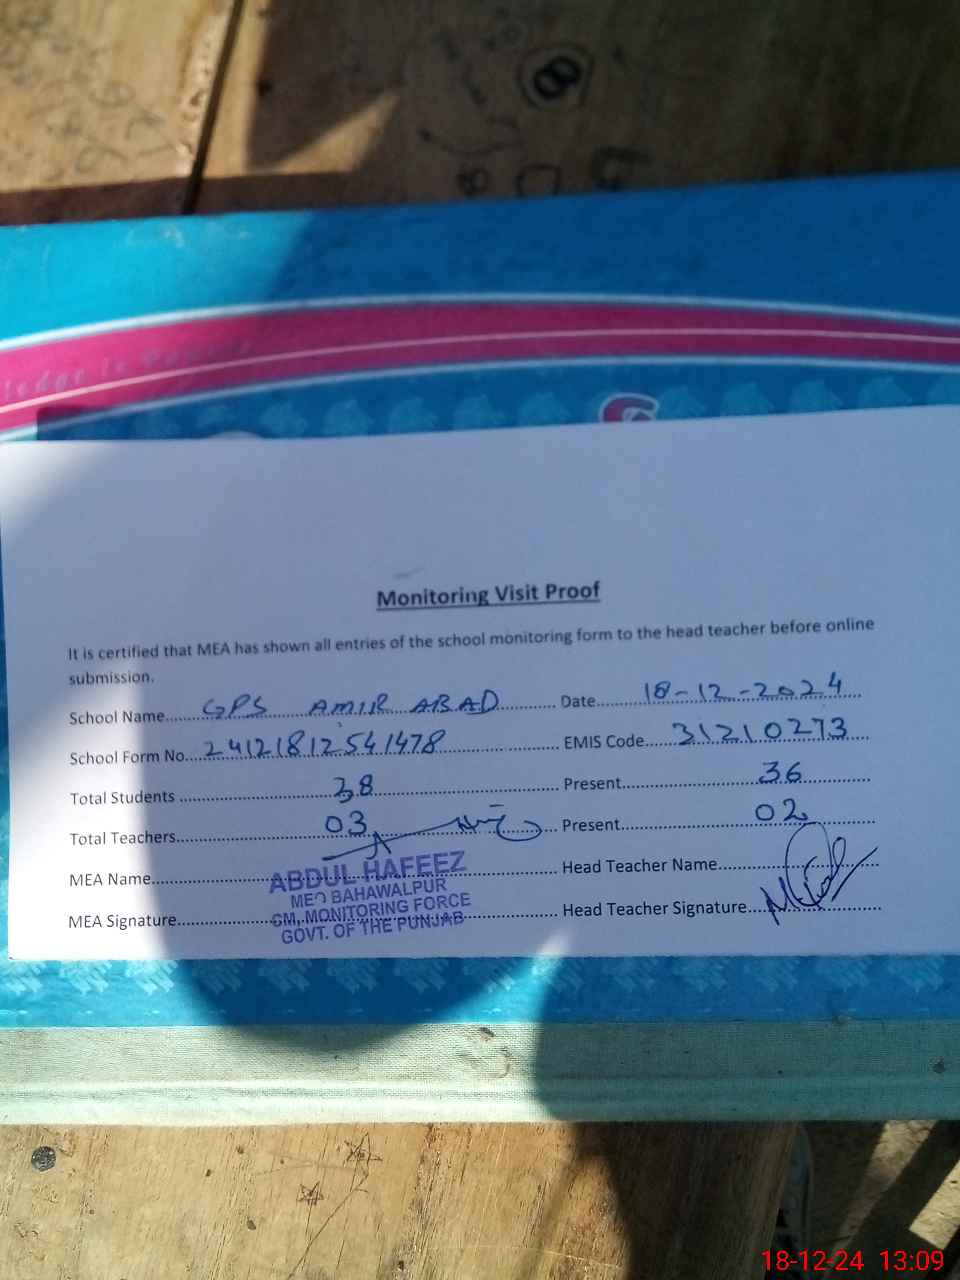 Monitoring Visit Proof
It is certified that MEA has shown all entries of the school monitoring form to the head teacher before online
submission.
School Name GPS AMIR ABAD Date 18-12-2024
School Form No. 24121812541478 EMIS Code 31210273
Total Students 38 Present 36
Total Teachers 03 Present 02
MEA Name ABDUL HAFEEZ Head Teacher Name
MEO BAHAWALPUR
MEA Signature CM, MONITORING FORCE Head Teacher Signature
GOVT. OF THE PUNJAB
18-12-24 13:09